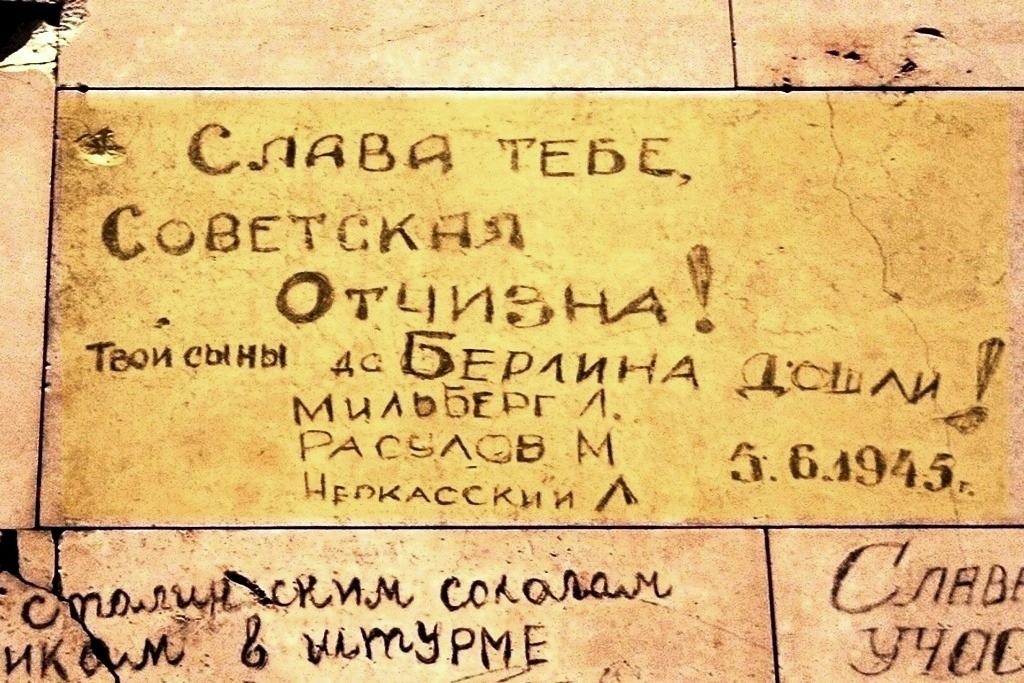 Слава тебе,
Советская
Отчизна!
Твои сыны до Берлина дошли!
Мильберг Л.
Расулов М
Черкасский Л
5.6.1945г.
Сталинским соколам
в штурме
Слава